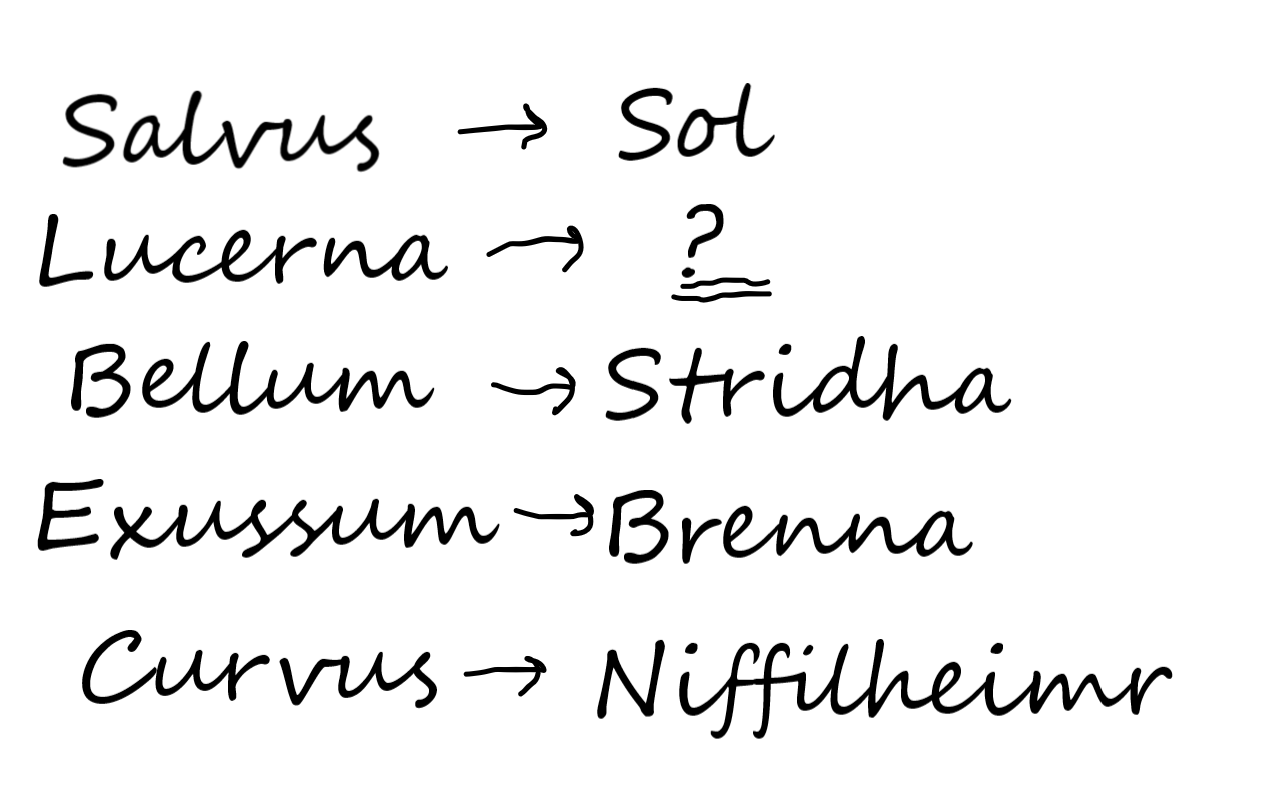 Salvus → Sol
Lucerna → ?
Bellum → Stridha
Exussum → Brenna
Curvus → Niffilheimr